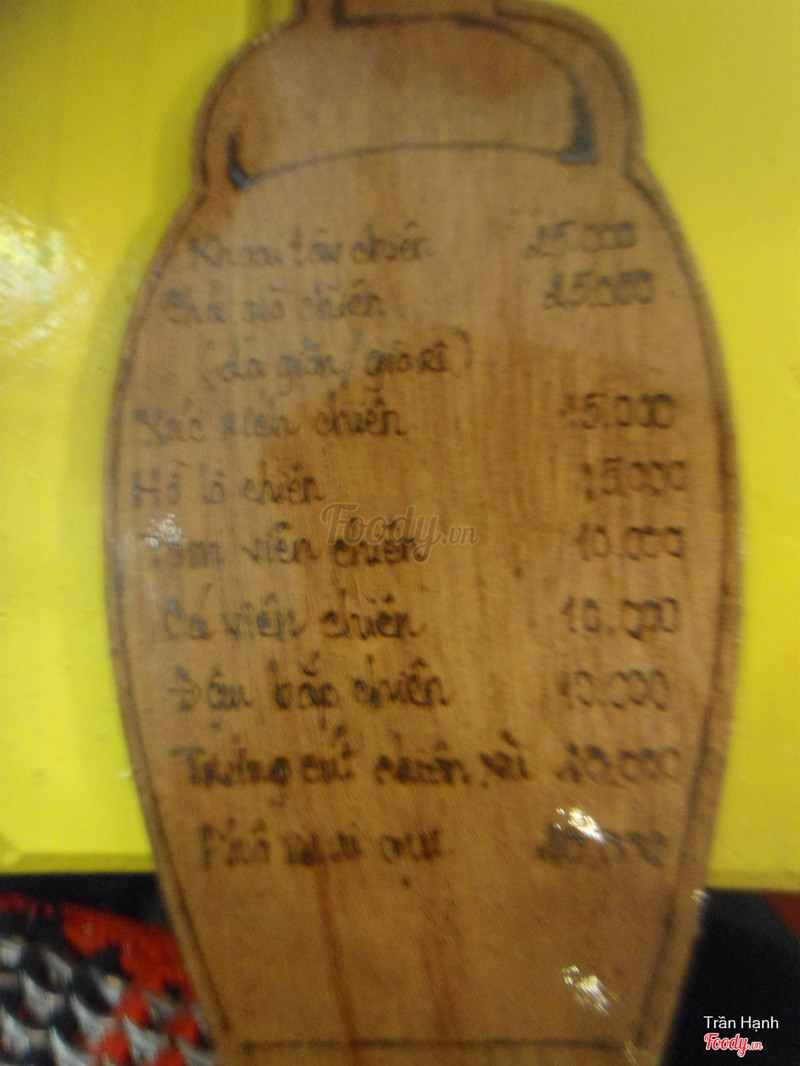 Khoai tây chiên 25.000
Chả giò chiên 25.000
(da giòn/
Xúc xích chiên 15.000
Hồ lô chiên 15.000
Tôm viên chiên 10.000
Foody.vn
Cá viên chiên 10.000
Đậu bắp chiên 10.000
Trứng cút chiên xù 10.000
Phô mai que
Trần Hạnh
Foody.vn